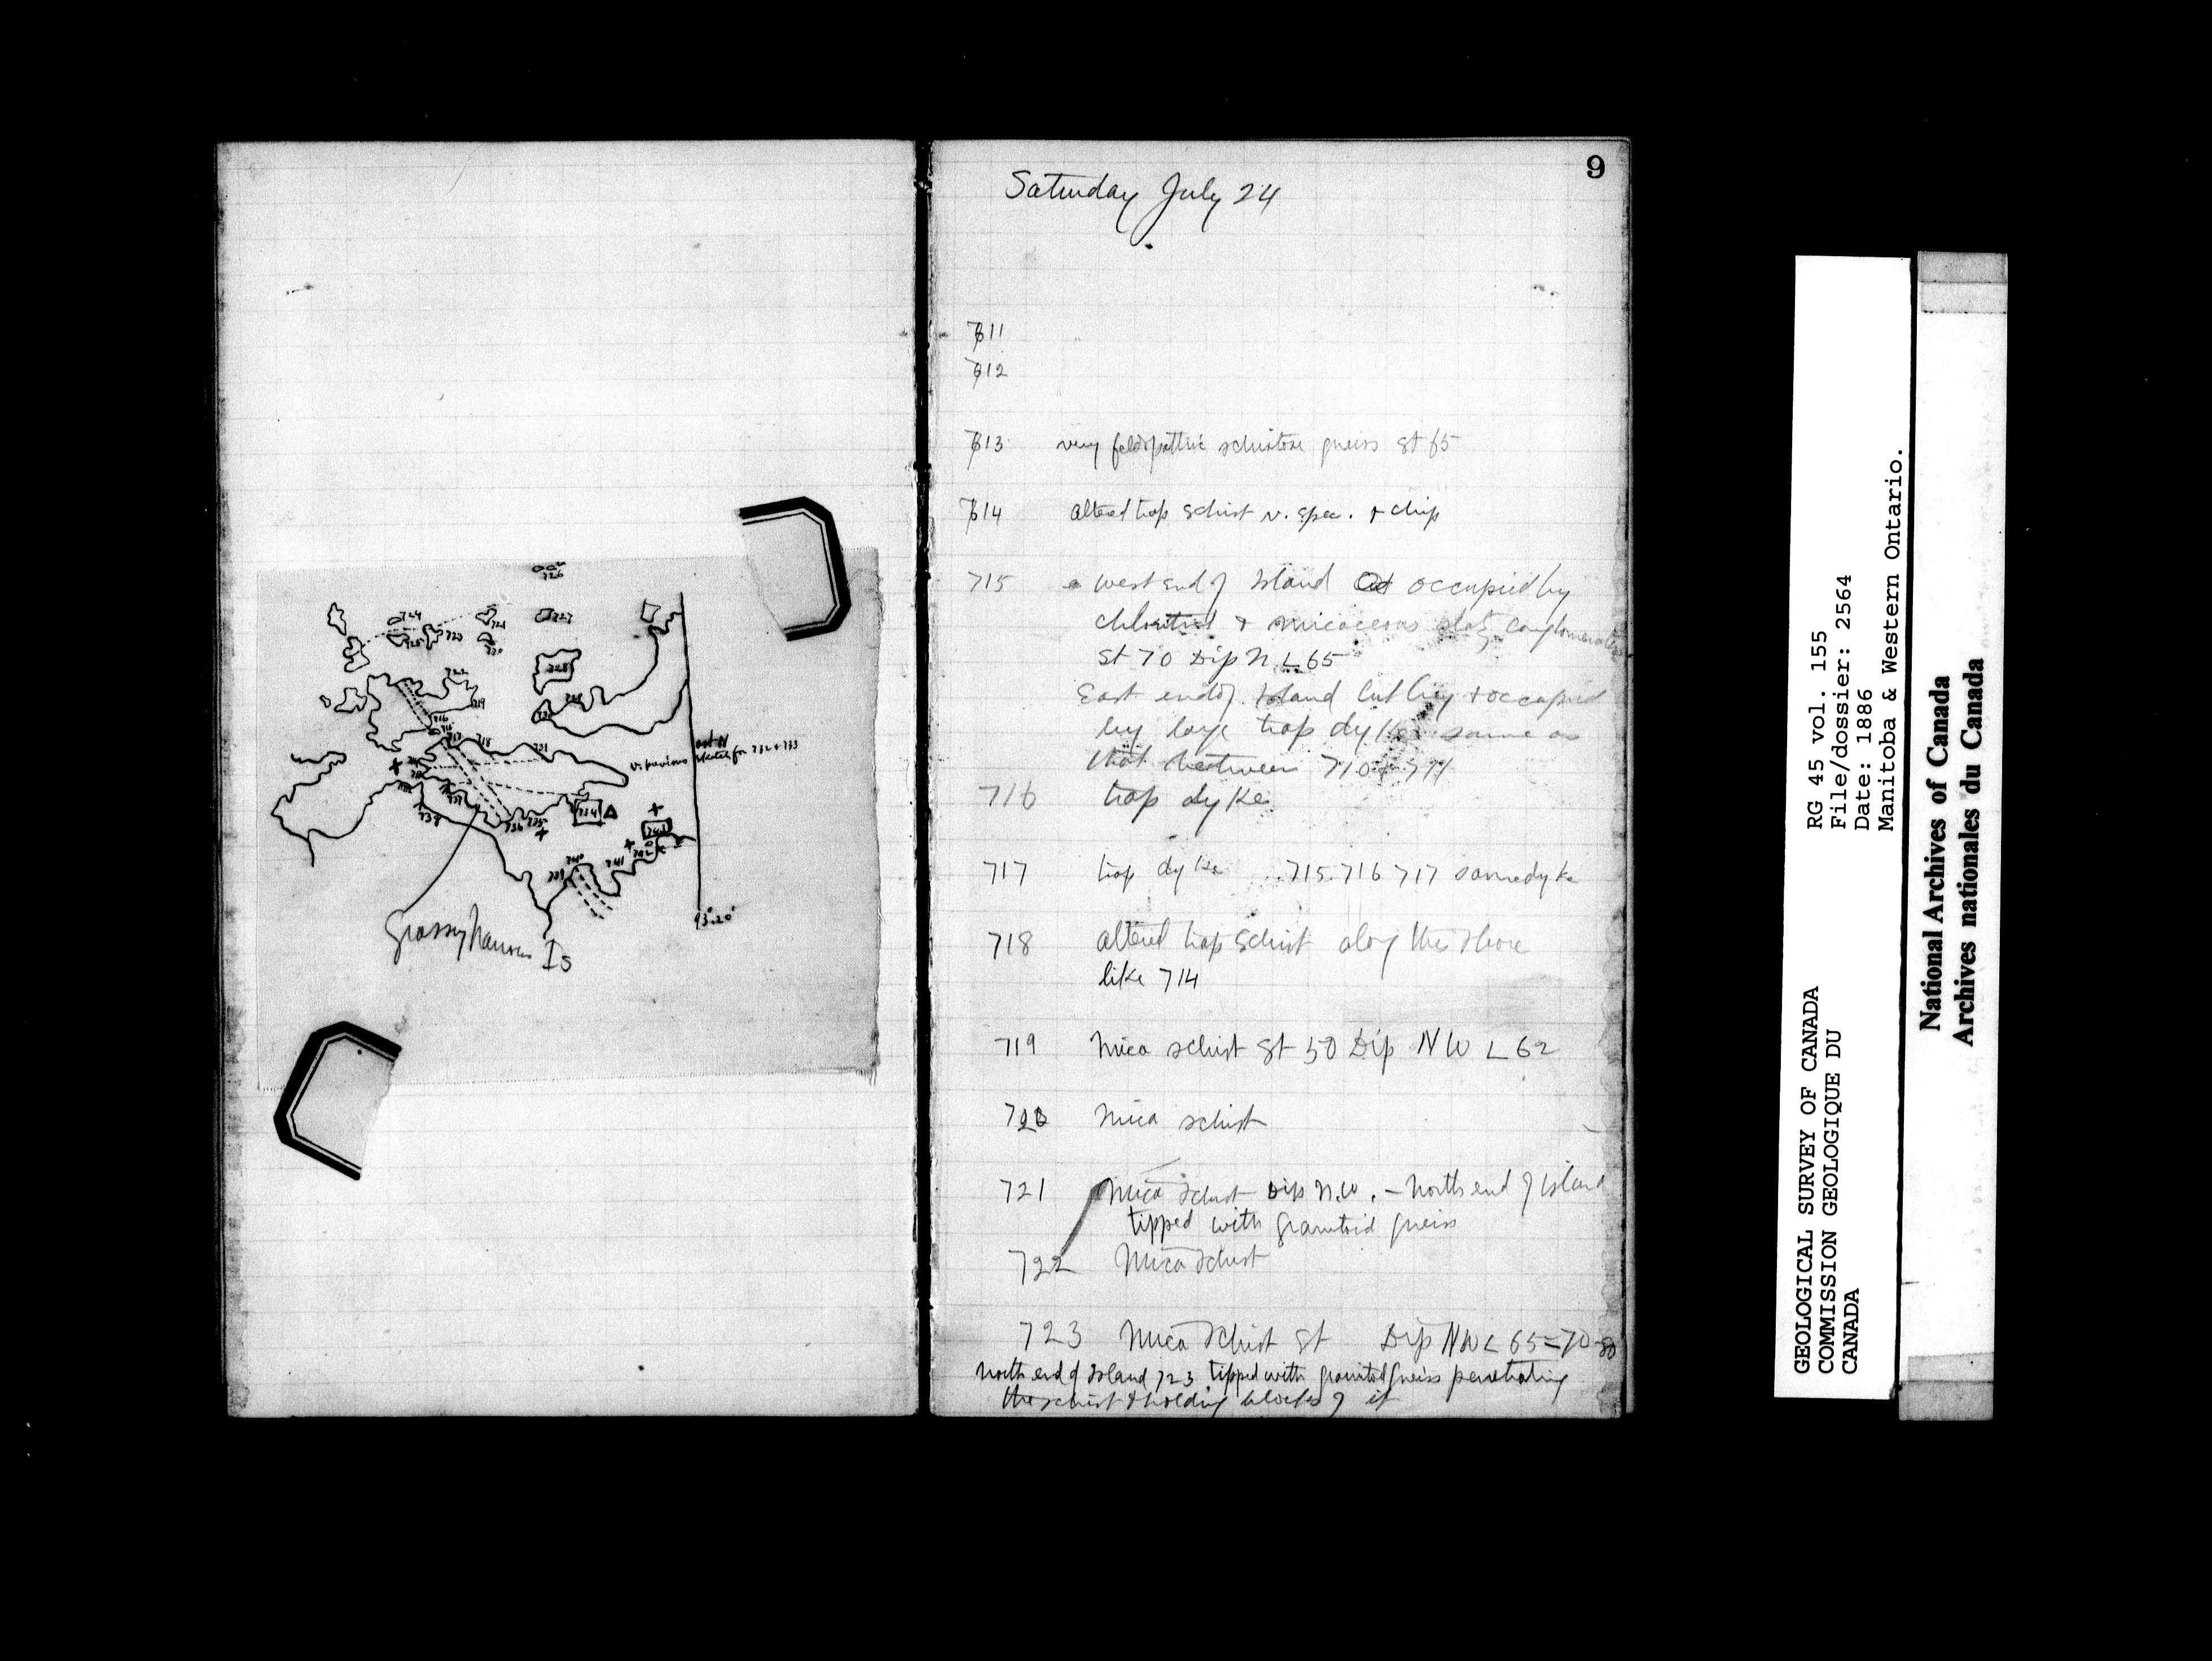 726
724
725
723
721
720
727
728
722
719
716
717
718
731
v. previous sketch for 732 & 733
734
736
735
737
738
740
741
742
743
739
93°.20'
Grassy Narrows Is
9
Saturday July 24
711
712
713 very feldspathic schistose gneiss St 65
714 altered trap schist v. spec. & chip
715 west end of Island occupied by
chloritic & micaceous slaty conglomerate
St 70 Dip N. L 65
East end of Island cut by & occupied
by large trap dyke same as
that between 710 & 711
716 trap dyke
717 trap dyke 715. 716 717 same dyke
718 altered trap schist along the shore
like 714
719 Mica schist St 50 Dip NW L 62
720 Mica schist
721 Mica schist Dip N.W. - North end of island
tipped with granitoid gneiss
722 Mica schist
723 Mica schist St Dip NW L 65=70-80
North end of Island 723 tipped with granitoid gneiss penetrating
the schist & holding blocks of it
GEOLOGICAL SURVEY OF CANADA
COMMISSION GEOLOGIQUE DU
CANADA
RG 45 vol. 155
File/dossier: 2564
Date: 1886
Manitoba & Western Ontario.
National Archives of Canada
Archives nationales du Canada